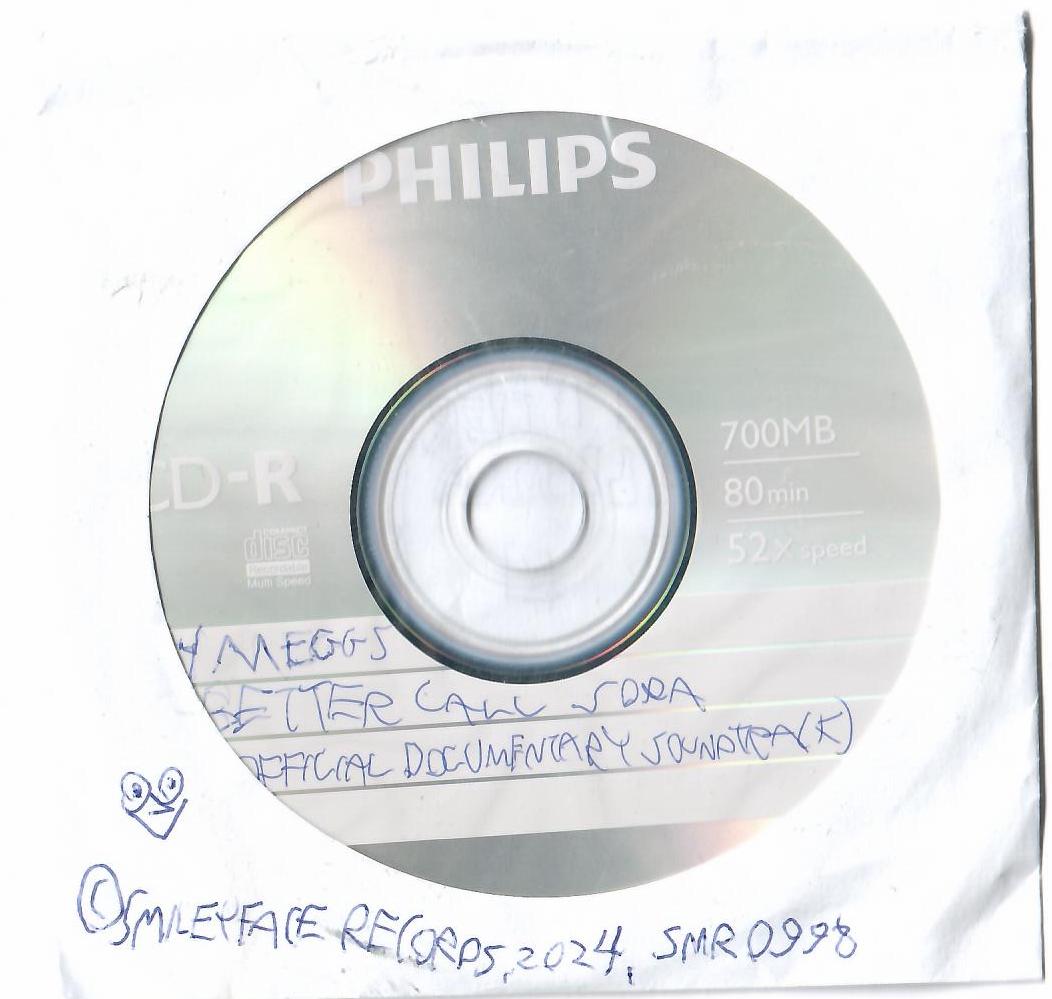 PHILIPS
CD-R
COMPACT
disc
Recordable
Multi Speed
700MB
80 min
52x speed
MEGGS
BETTER CALL SORA
OFFICIAL DOCUMENTARY SOUNDTRACK)
©SMILEYFACE RECORDS, 2024, SMR0998